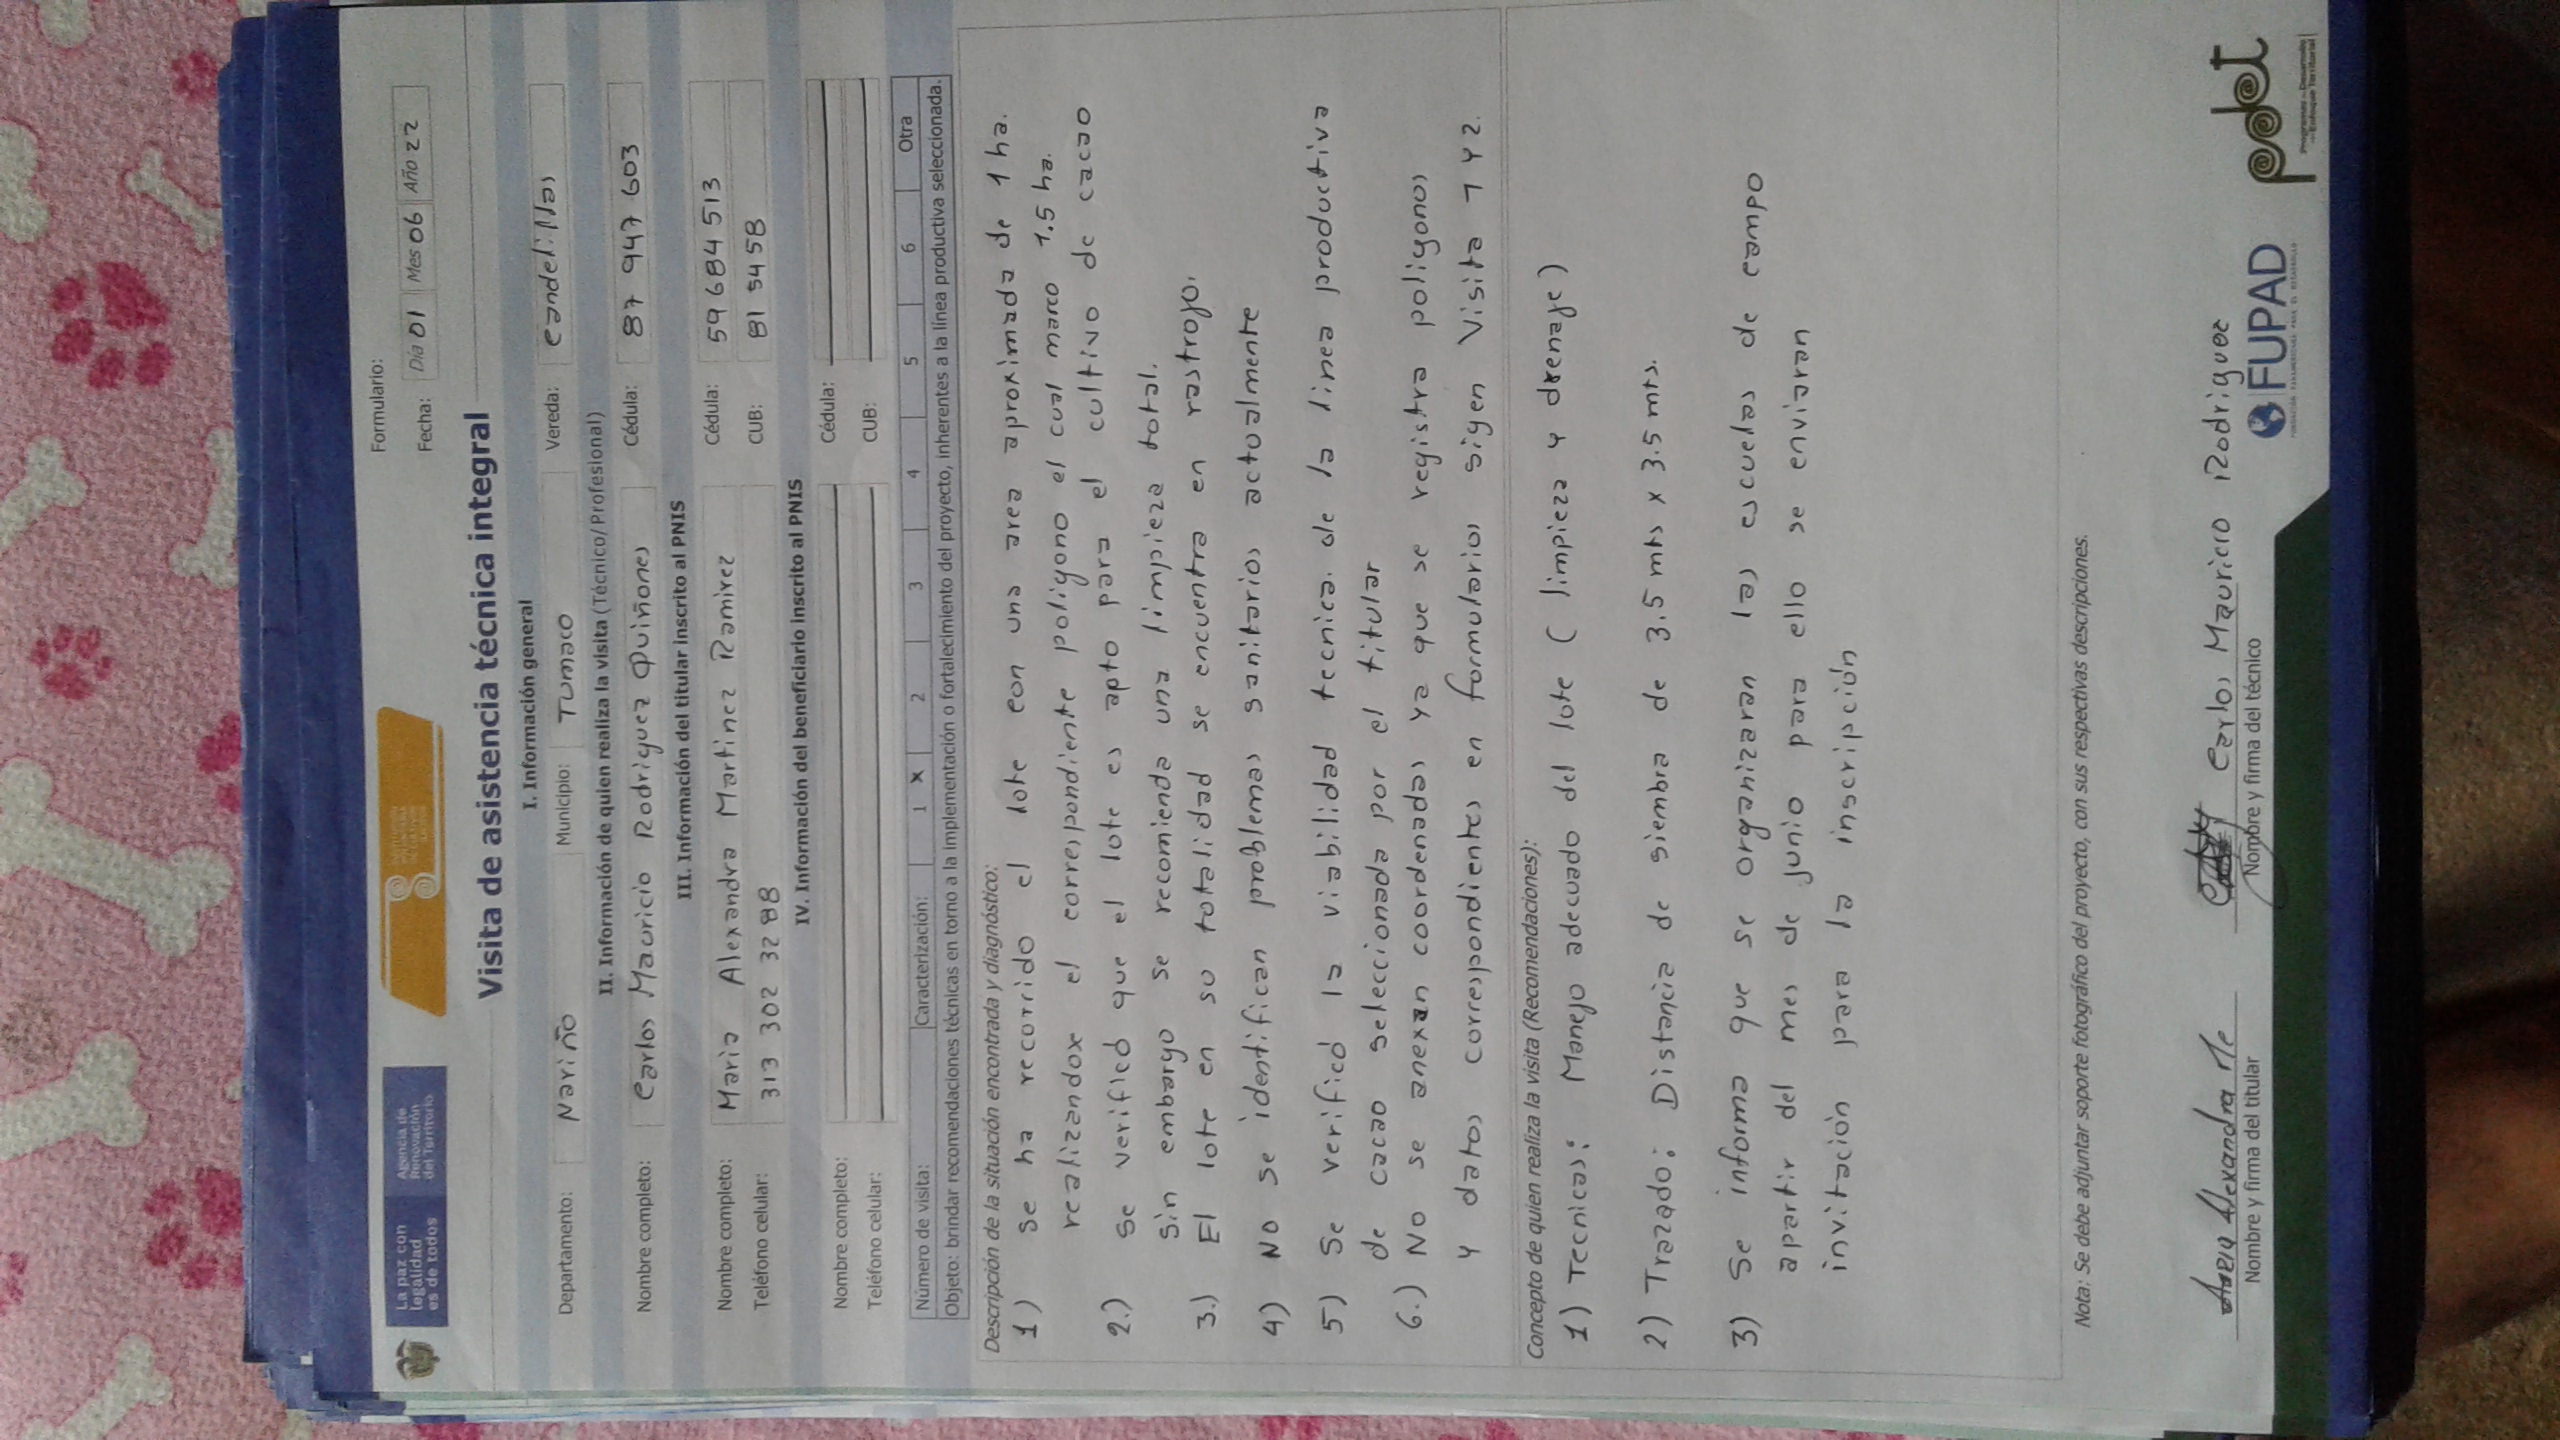 La paz con
legalidad
es de todos
Agencia de
Renovación
del Territorio
Formulario:
Fecha: Día 01 Mes 06 Año 22
Visita de asistencia técnica integral
I. Información general
Departamento: Nariño Municipio: Tumaco Vereda: Candelillas
II. Información de quien realiza la visita (Técnico/Profesional)
Nombre completo: Carlos Mauricio Rodriguez Quiñones Cédula: 87 947 603
III. Información del titular inscrito al PNIS
Nombre completo: Maria Alexandra Martinez Ramirez Cédula: 59 684 513
Teléfono celular: 313 302 3288 CUB: 81 5458
IV. Información del beneficiario inscrito al PNIS
Nombre completo: Cédula:
Teléfono celular: CUB:
Número de visita: Caracterización: 1 X 2 3 4 5 6 Otra
Objeto: brindar recomendaciones técnicas en torno a la implementación o fortalecimiento del proyecto, inherentes a la línea productiva seleccionada.
Descripción de la situación encontrada y diagnóstico:
1) Se ha recorrido el lote con una area aproximada de 1 ha.
realizandox el correspondiente poligono el cual marco 1.5 ha.
2.) Se verificó que el lote es apto para el cultivo de cacao
Sin embargo se recomienda una limpieza total.
3.) El lote en su totalidad se encuentra en rastrojo.
4) No se identifican problemas sanitarios actualmente
5) Se verificó la viabilidad tecnica. de la linea productiva
de cacao seleccionada por el titular
6.) No se anexan coordenadas ya que se registra poligonos
y datos correspondientes en formularios sigen Visita 1 y 2.
Concepto de quien realiza la visita (Recomendaciones):
1) Tecnicas: Manejo adecuado del lote ( limpieza y drenaje)
2) Trazado: Distancia de siembra de 3.5 mts x 3.5 mts.
3) Se informa que se organizaran las escuelas de campo
apartir del mes de junio para ello se enviaran
invitación para la inscripción
Nota: Se debe adjuntar soporte fotográfico del proyecto, con sus respectivas descripciones.
Carlos Mauricio Rodriguez
Nombre y firma del titular Nombre y firma del técnico
FUPAD
pdet
Programas de Desarrollo
con Enfoque Territorial